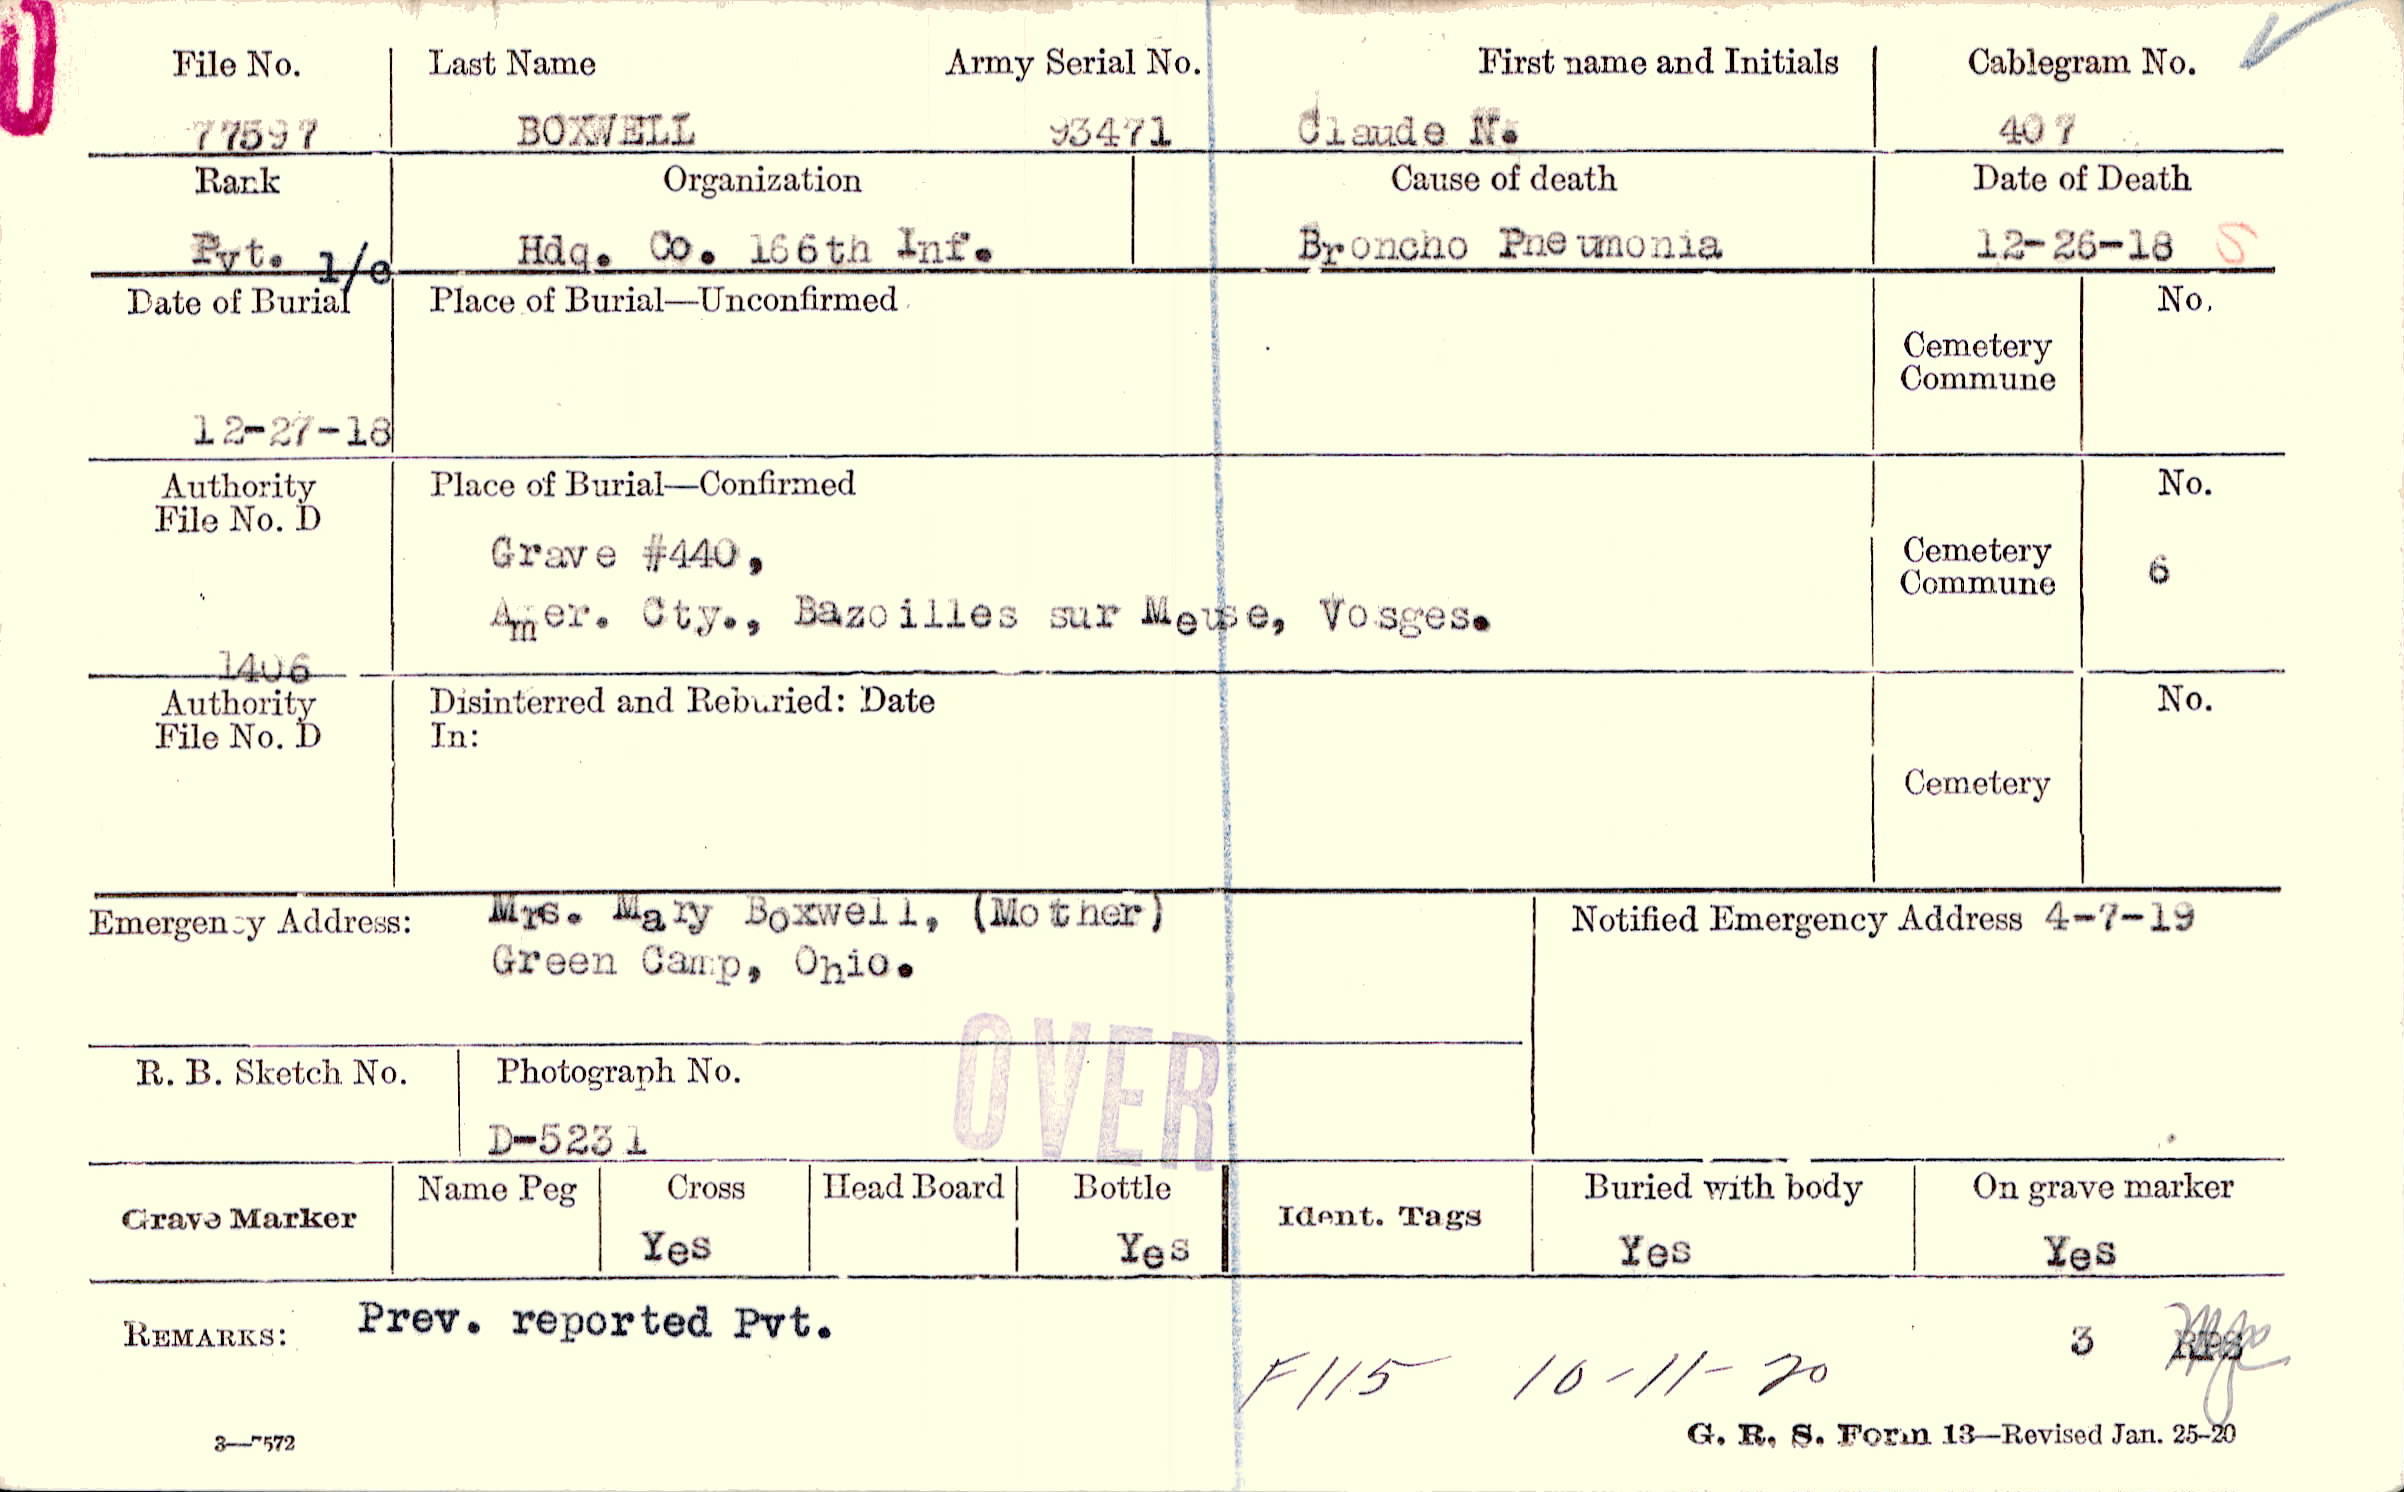 File No. Last Name Army Serial No. First name and Initials Cablegram No.
77597 BOXWELL 93471 Claude N. 407
Rank Organization Cause of death Date of Death
Pvt. 1/c Hdq. Co. 166th Inf. Broncho Pneumonia 12-26-18 S
Date of Burial Place of Burial—Unconfirmed No.
Cemetery
Commune
12-27-18
Authority Place of Burial—Confirmed No.
File No. D
Grave #440,
Cemetery
Commune 6
Amer. Cty., Bazoilles sur Meuse, Vosges.
1406
Authority Disinterred and Reburied: Date No.
File No. D In:
Cemetery
Emergency Address: Mrs. Mary Boxwell, (Mother) Notified Emergency Address 4-7-19
Green Camp, Ohio.
OVER
R. B. Sketch No. Photograph No.
D-5231
Grave Marker Name Peg Cross Head Board Bottle Ident. Tags Buried with body On grave marker
Yes Yes Yes Yes
REMARKS: Prev. reported Pvt. 3
F115 10-11-20
3—7572 G. R. S. Form 13—Revised Jan. 25-20